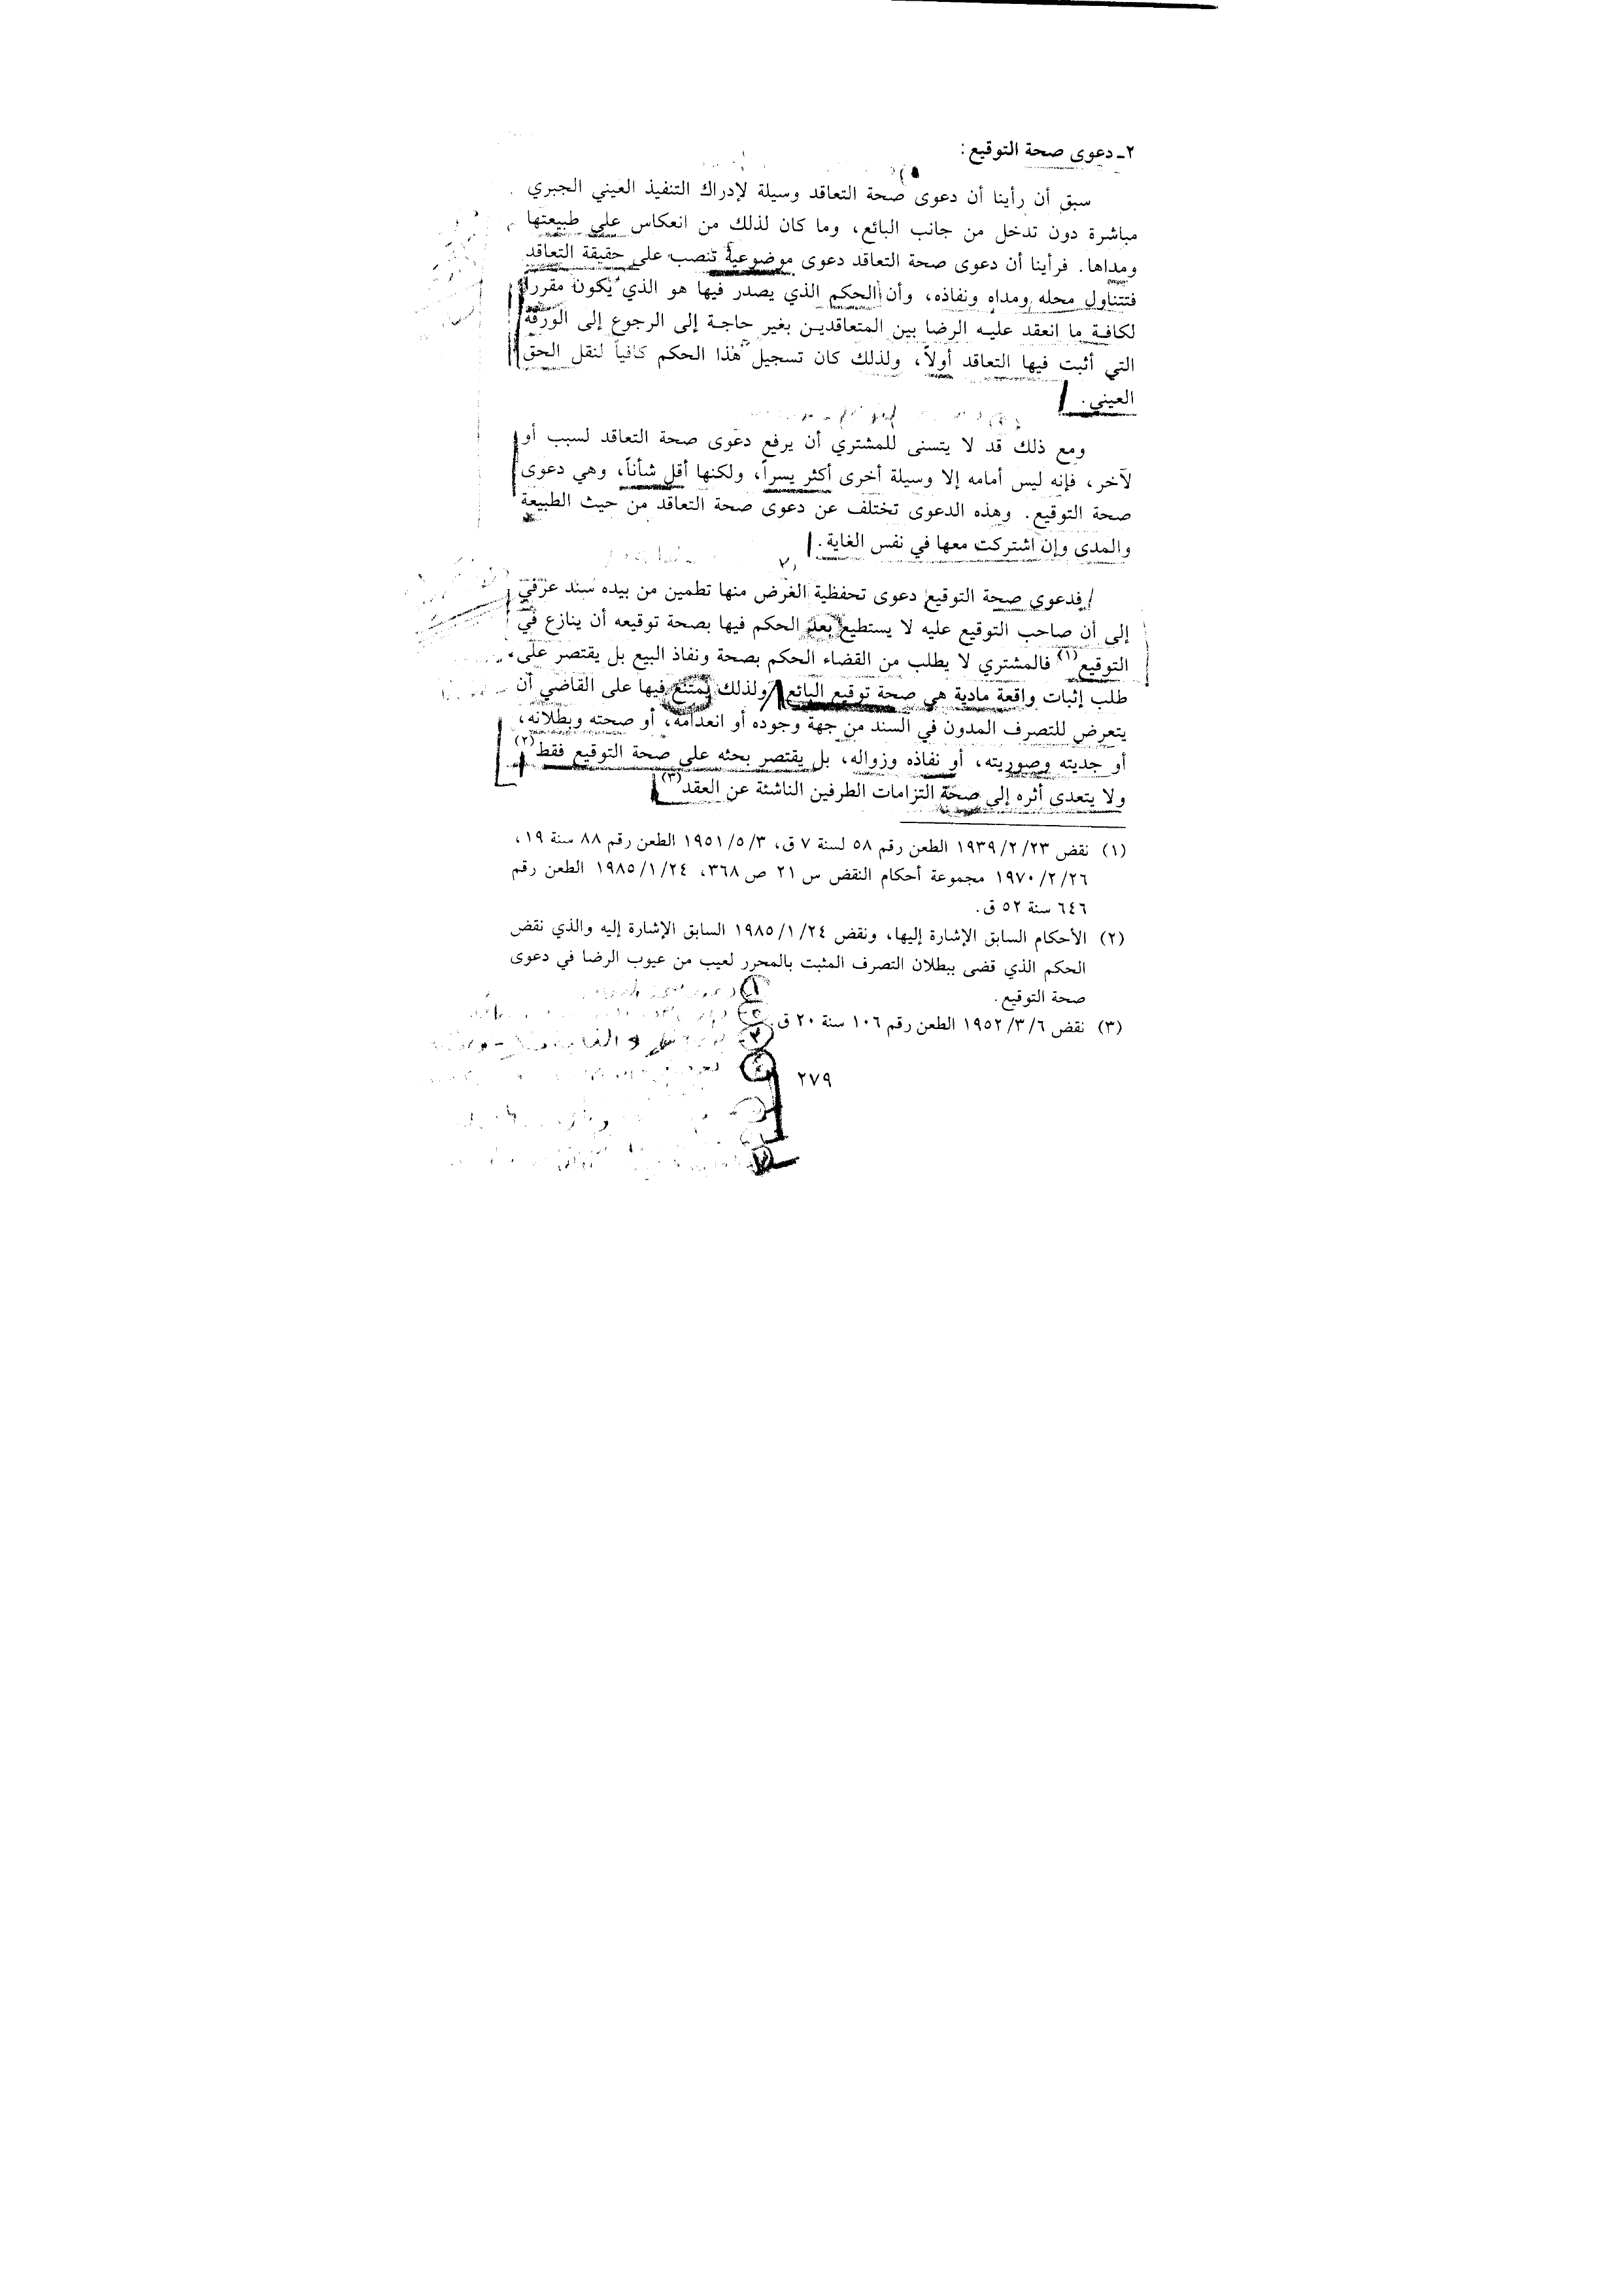 ٢ـ دعوى صحة التوقيع:
سبق أن رأينا أن دعوى صحة التعاقد وسيلة لإدراك التنفيذ العيني الجبري
مباشرة دون تدخل من جانب البائع، وما كان لذلك من انعكاس على طبيعتها
ومداها. فرأينا أن دعوى صحة التعاقد دعوى موضوعية تنصب على حقيقة التعاقد
فتتناول محله ومداه ونفاذه، وأن الحكم الذي يصدر فيها هو الذي يكون مقرراً
لكافة ما انعقد عليه الرضا بين المتعاقدين بغير حاجة إلى الرجوع إلى الورقة
التي أثبت فيها التعاقد أولاً، ولذلك كان تسجيل هذا الحكم كافياً لنقل الحق
العيني.
ومع ذلك قد لا يتسنى للمشتري أن يرفع دعوى صحة التعاقد لسبب أو
لآخر، فإنه ليس أمامه إلا وسيلة أخرى أكثر يسراً، ولكنها أقل شأناً، وهي دعوى
صحة التوقيع. وهذه الدعوى تختلف عن دعوى صحة التعاقد من حيث الطبيعة
والمدى وإن اشتركت معها في نفس الغاية.
فدعوى صحة التوقيع دعوى تحفظية الغرض منها تطمين من بيده سند عرفي
إلى أن صاحب التوقيع عليه لا يستطيع بعد الحكم فيها بصحة توقيعه أن ينازع في
التوقيع(١) فالمشتري لا يطلب من القضاء الحكم بصحة ونفاذ البيع بل يقتصر على
طلب إثبات واقعة مادية هي صحة توقيع البائع ولذلك يمتنع فيها على القاضي أن
يتعرض للتصرف المدون في السند من جهة وجوده أو انعدامه، أو صحته وبطلانه،
أو جديته وصوريته، أو نفاذه وزواله، بل يقتصر بحثه على صحة التوقيع فقط(٢)
ولا يتعدى أثره إلى صحة التزامات الطرفين الناشئة عن العقد(٣)
(١) نقض ١٩٣٩/٢/٢٣ الطعن رقم ٥٨ لسنة ٧ ق، ١٩٥١/٥/٣ الطعن رقم ٨٨ سنة ١٩،
١٩٧٠/٢/٢٦ مجموعة أحكام النقض س ٢١ ص ٣٦٨، ١٩٨٥/١/٢٤ الطعن رقم
٦٤٦ سنة ٥٢ ق.
(٢) الأحكام السابق الإشارة إليها، ونقض ١٩٨٥/١/٢٤ السابق الإشارة إليه والذي نقض
الحكم الذي قضى ببطلان التصرف المثبت بالمحرر لعيب من عيوب الرضا في دعوى
صحة التوقيع.
(٣) نقض ١٩٥٢/٣/٦ الطعن رقم ١٠٦ سنة ٢٠ ق.
٢٧٩